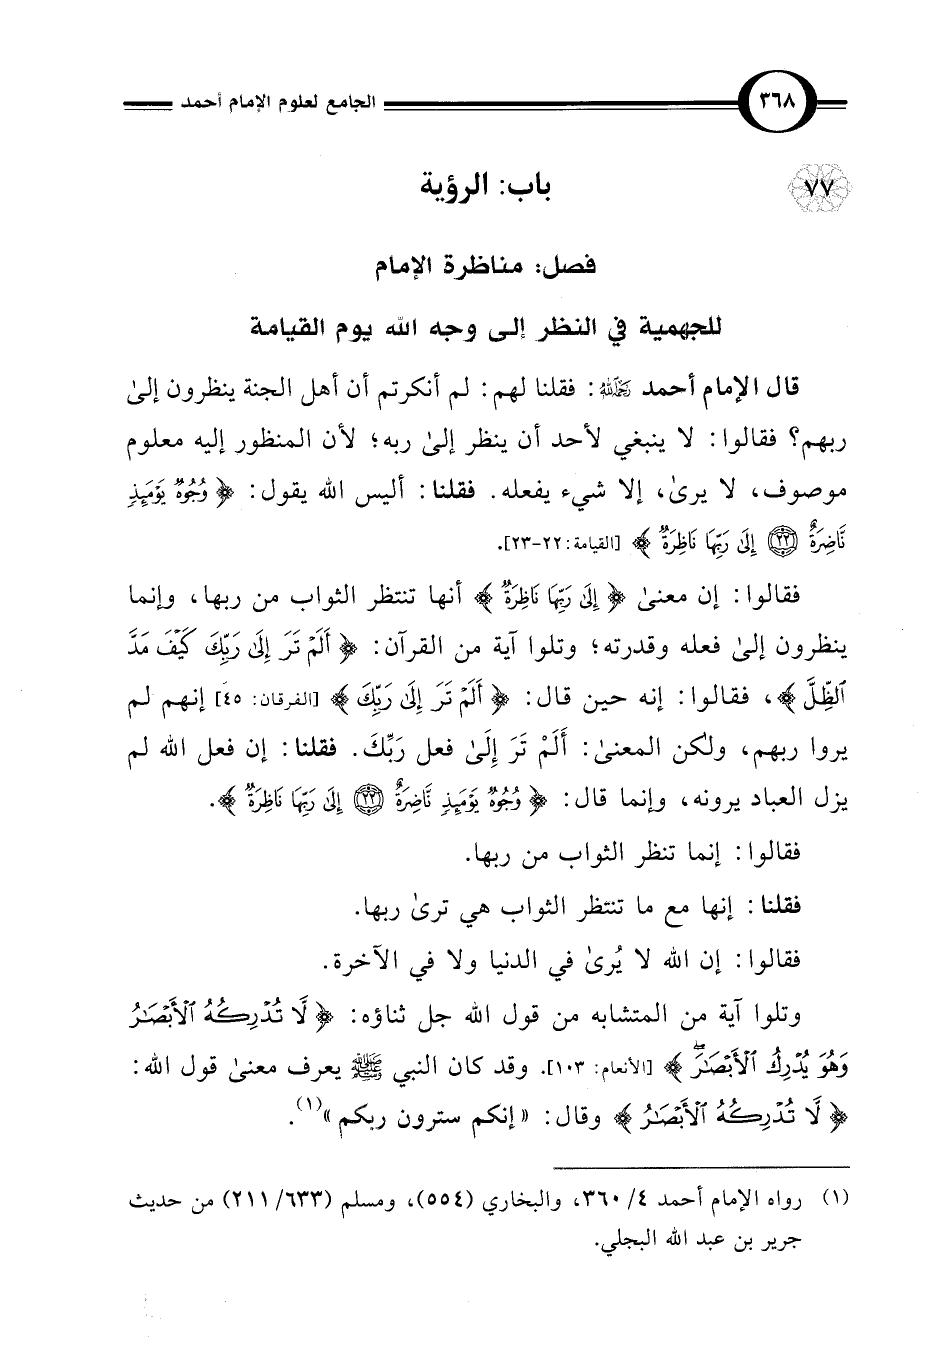 ٣٦٨
الجامع لعلوم الإمام أحمد
٧٧
باب: الرؤية
فصل: مناظرة الإمام
للجهمية في النظر إلى وجه الله يوم القيامة
قال الإمام أحمد رَحِمَهُ اللهُ: فقلنا لهم: لم أنكرتم أن أهل الجنة ينظرون إلىٰ
ربهم؟ فقالوا: لا ينبغي لأحد أن ينظر إلىٰ ربه؛ لأن المنظور إليه معلوم
موصوف، لا يرىٰ، إلا شيء يفعله. فقلنا: أليس الله يقول: ﴿وُجُوهٌ يَوْمَئِذٍ
نَّاضِرَةٌ ٢٢ إِلَىٰ رَبِّهَا نَاظِرَةٌ﴾ [القيامة: ٢٢-٢٣].
فقالوا: إن معنىٰ ﴿إِلَىٰ رَبِّهَا نَاظِرَةٌ﴾ أنها تنتظر الثواب من ربها، وإنما
ينظرون إلىٰ فعله وقدرته؛ وتلوا آية من القرآن: ﴿أَلَمْ تَرَ إِلَىٰ رَبِّكَ كَيْفَ مَدَّ
ٱلظِّلَّ﴾، فقالوا: إنه حين قال: ﴿أَلَمْ تَرَ إِلَىٰ رَبِّكَ﴾ [الفرقان: ٤٥] إنهم لم
يروا ربهم، ولكن المعنىٰ: أَلَمْ تَرَ إِلَىٰ فعل رَبِّكَ. فقلنا: إن فعل الله لم
يزل العباد يرونه، وإنما قال: ﴿وُجُوهٌ يَوْمَئِذٍ نَّاضِرَةٌ ٢٢ إِلَىٰ رَبِّهَا نَاظِرَةٌ﴾.
فقالوا: إنما تنظر الثواب من ربها.
فقلنا: إنها مع ما تنتظر الثواب هي ترىٰ ربها.
فقالوا: إن الله لا يُرىٰ في الدنيا ولا في الآخرة.
وتلوا آية من المتشابه من قول الله جل ثناؤه: ﴿لَّا تُدْرِكُهُ ٱلْأَبْصَٰرُ
وَهُوَ يُدْرِكُ ٱلْأَبْصَٰرَۖ﴾ [الأنعام: ١٠٣]. وقد كان النبي ﷺ يعرف معنىٰ قول الله:
﴿لَّا تُدْرِكُهُ ٱلْأَبْصَٰرُ﴾ وقال: «إنكم سترون ربكم»(١).
(١) رواه الإمام أحمد ٤/ ٣٦٠، والبخاري (٥٥٤)، ومسلم (٦٣٣/ ٢١١) من حديث
جرير بن عبد الله البجلي.